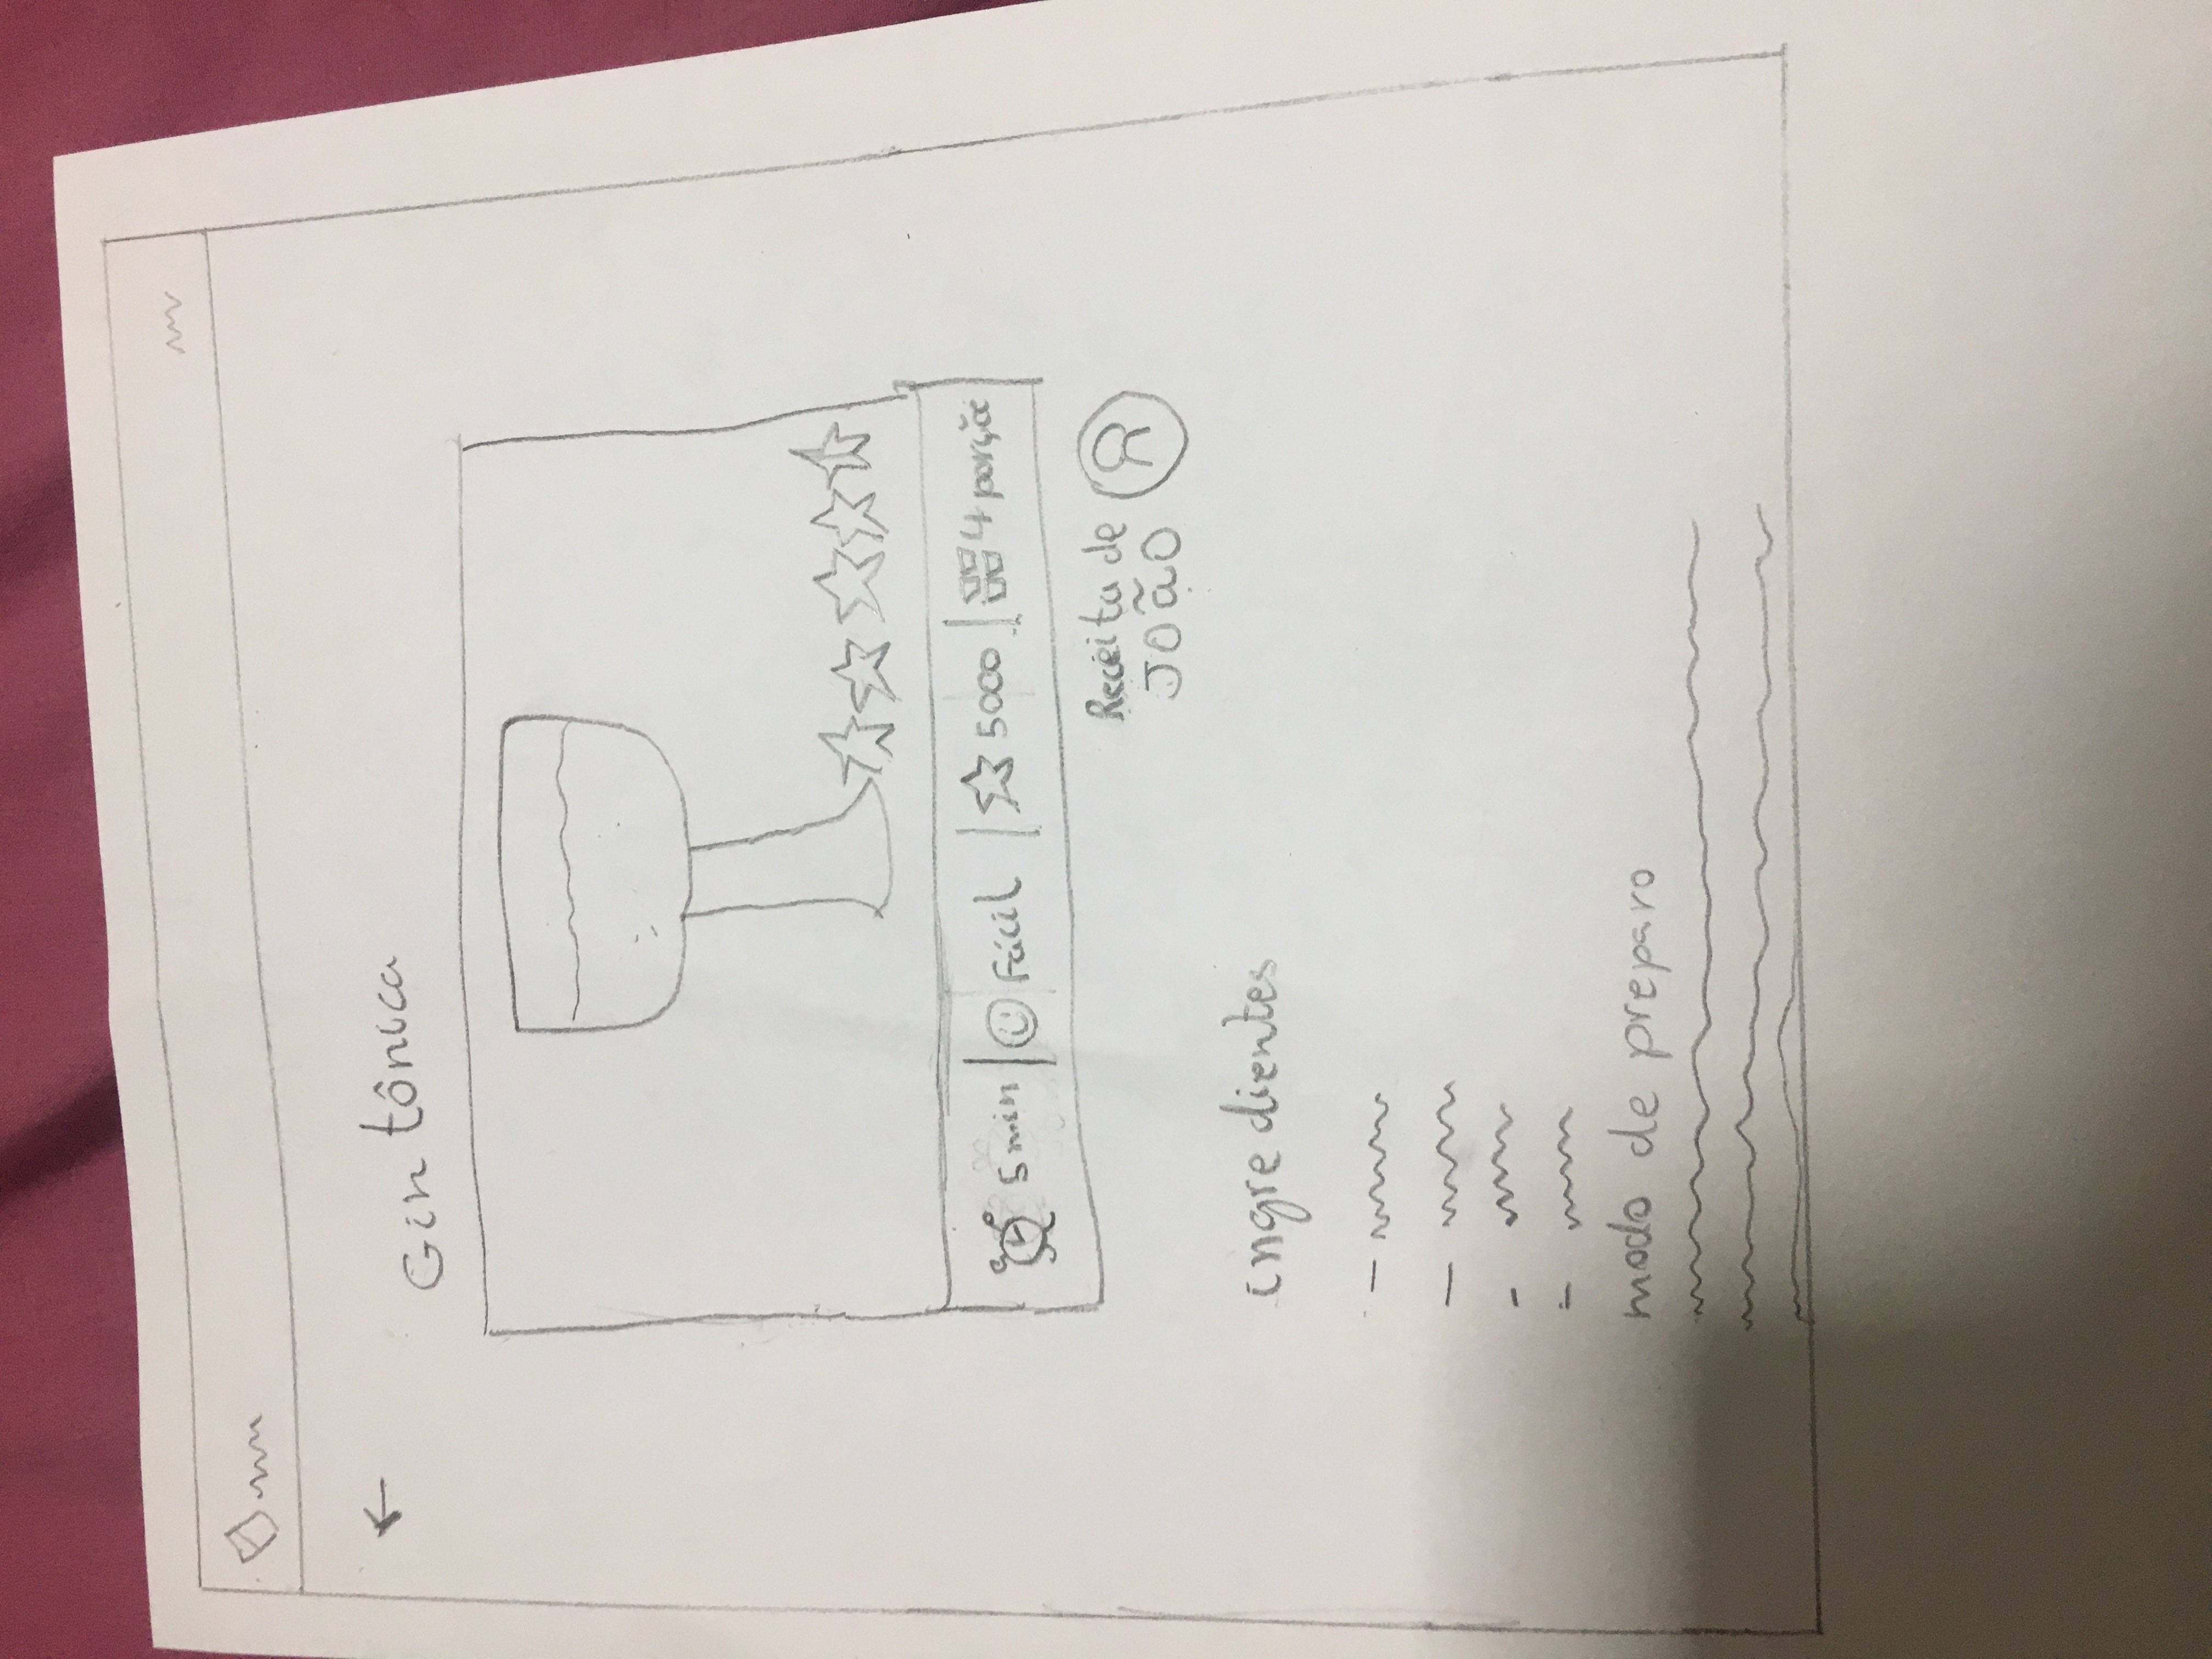 Gin tônica
5 min | Fácil | 5000 | 4 porçõe
Receita de
JOãO
ingredientes
modo de preparo